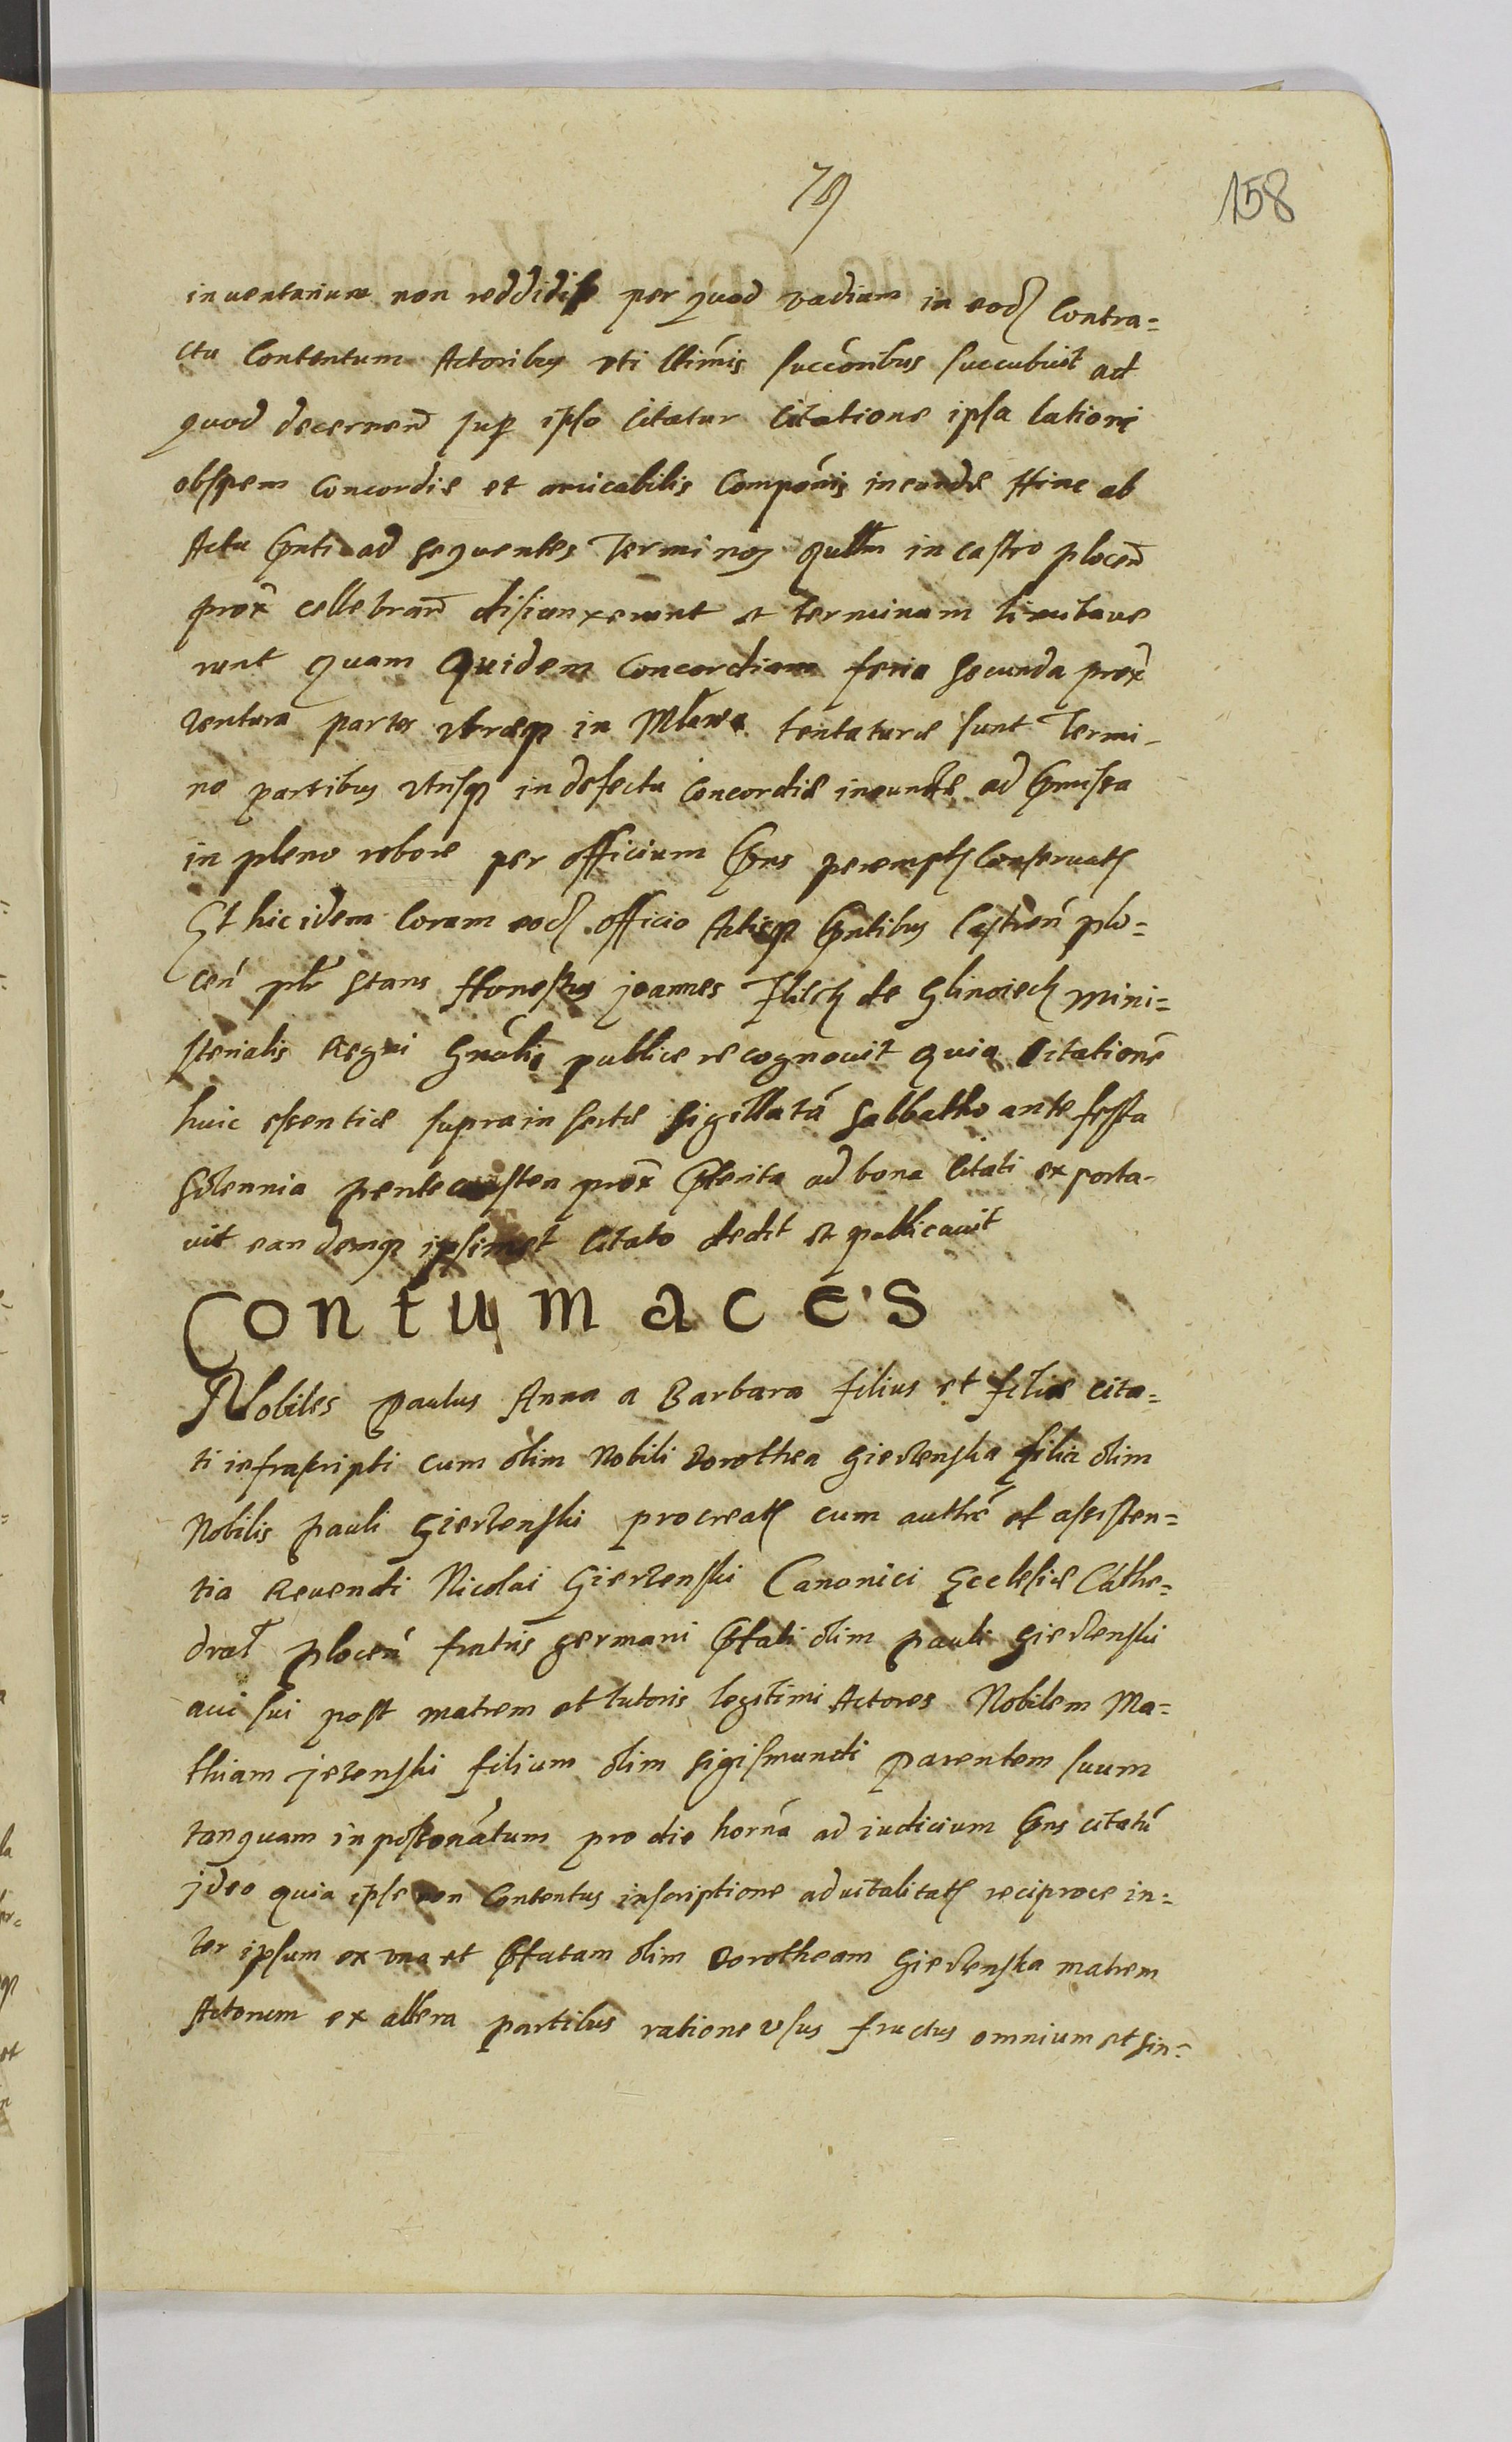 79
158
inuentarium non reddidisse per quod vadium in eod Contra=
ctu Contentum Actoribus vti llimis succóribus succubuit ad
quod decernend sup ipso Citatur Citatione ipsa lationi
obspem Concordiæ et amicabilis Compónis ineundæ Hinc ab
Actu pnti ad sequentes Terminos qullm in castro plocen
prox cellebrand disiunxerunt et terminum limitaue
runt quam quidem Concordiam feria secunda prox
ventura partes vtræq in Mlawa tentaturæ sunt Termi-
no partibus vtrisq in defectu Concordiæ ineundæ ad pmissa
in pleno robore per officium pns perempt Conseruat
Et hic idem Coram eod officio Actisq pntibus Castren plo=
cen plr stans Honestus joannes Flisch de Glinoieck mini=
sterialis Regni Gnális publice recognouit quia Citationé
huic essentiæ suprainsertæ sigillatá Sabbatho ante festa
Solennia pentecosten prox pterita ad bona Citati exporta-
uit eandemq ipsimet Citato dedit et publicauit
Contumaces
Nobiles paulus Anna a Barbara filius et filiæ cita=
ti infrascripti cum olim Nobili Dorothea Gierzenska filia olim
Nobilis pauli Gierzenski procreat cum authe et assisten=
tia Reuendi Nicolai Gierzenski Canonici Ecclesiæ Cathe=
dral plocen fratris germani pfati olim pauli Gierzenski
aui sui post matrem et tutoris legitimi Actores Nobilem Ma=
thiam jezenski filium olim Sigismundi parentem suum
tanquam inpossonátum pro die horná ad iudicium pns citatú
jdeo quia ipse non Contentus inscriptione aduitalitat reciproce in=
ter ipsum ex vna et pfatam olim Dorotheam Gierzenska matrem
Actorum ex altera partibus ratione vsus fructus omnium et sin=